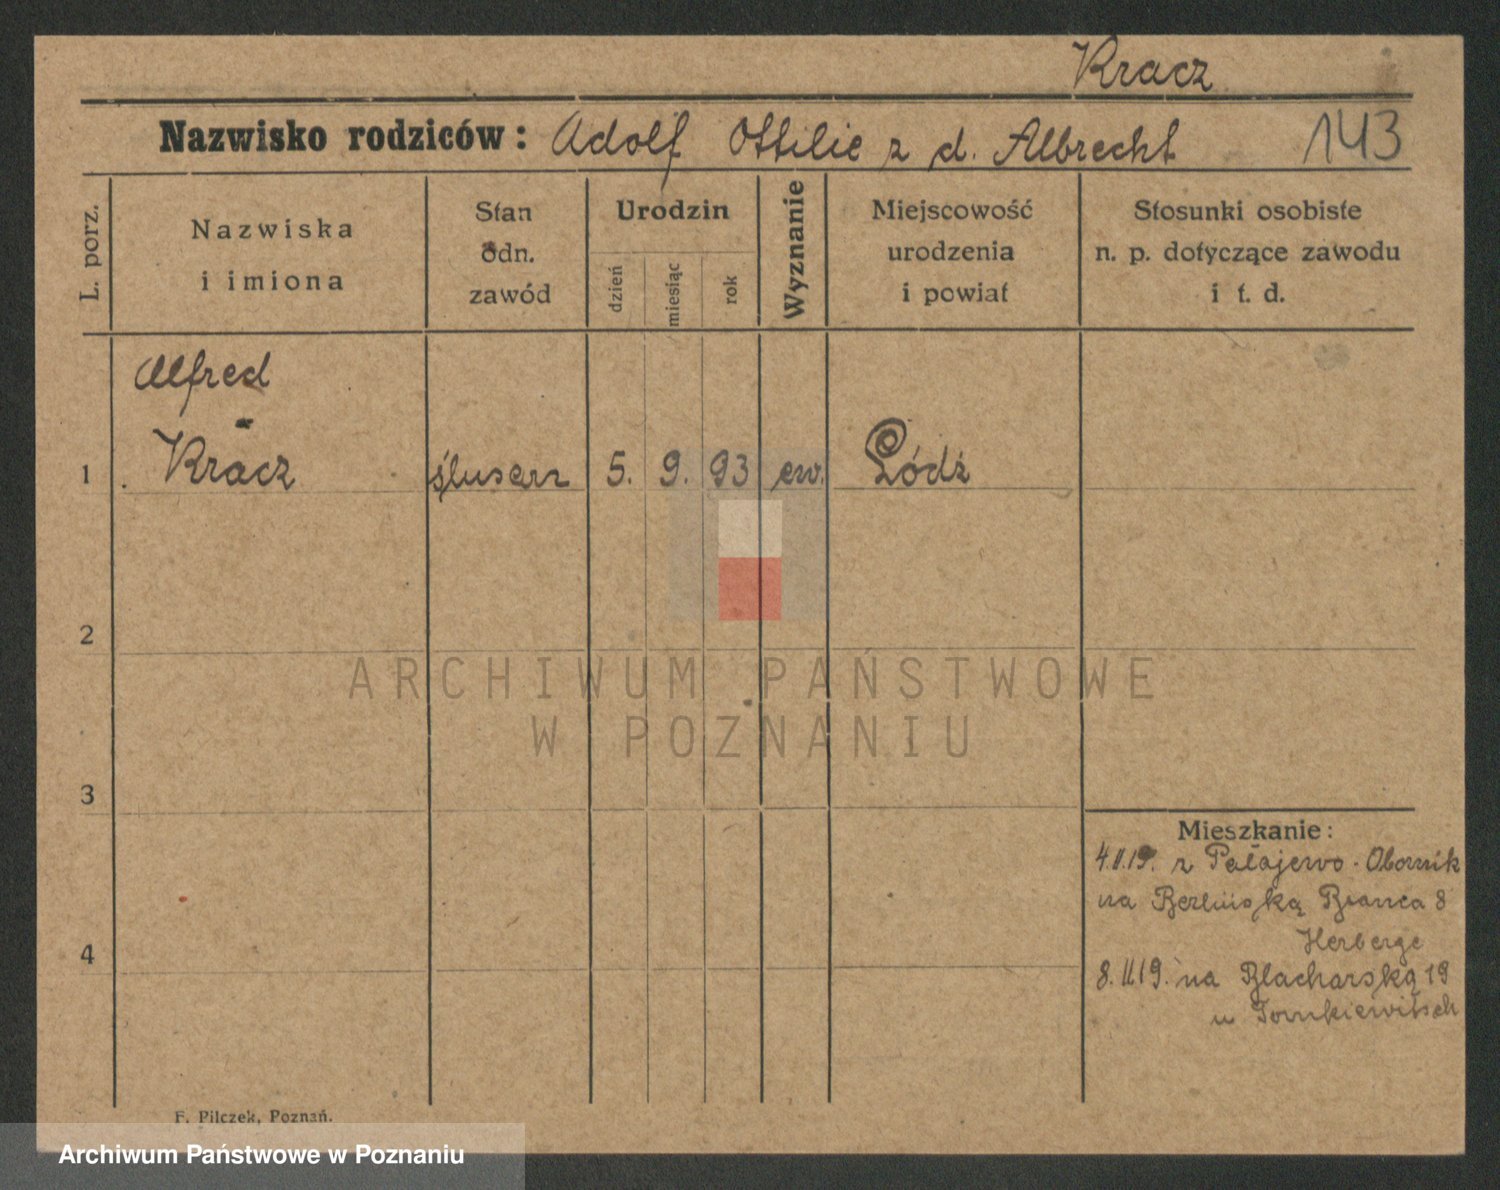 Kracz
Nazwisko rodziców: Adolf Ottilie z d. Albrecht 143
L. porz.
Nazwiska
i imiona
Stan
odn.
zawód
Urodzin
dzień
miesiąc
rok
Wyznanie
Miejscowość
urodzenia
i powiat
Stosunki osobiste
n. p. dotyczące zawodu
i t. d.
Alfred
1 Kracz ślusarz 5. 9. 93 ew. Łódź
2
3
4
Mieszkanie:
4.II.19. z Obornik
na Berlińską 8
Herberge
8.II.19. na Blacharską 19
u Tomkiewitsch
F. Pilczek, Poznań.
ARCHIWUM PAŃSTWOWE
W POZNANIU
Archiwum Państwowe w Poznaniu